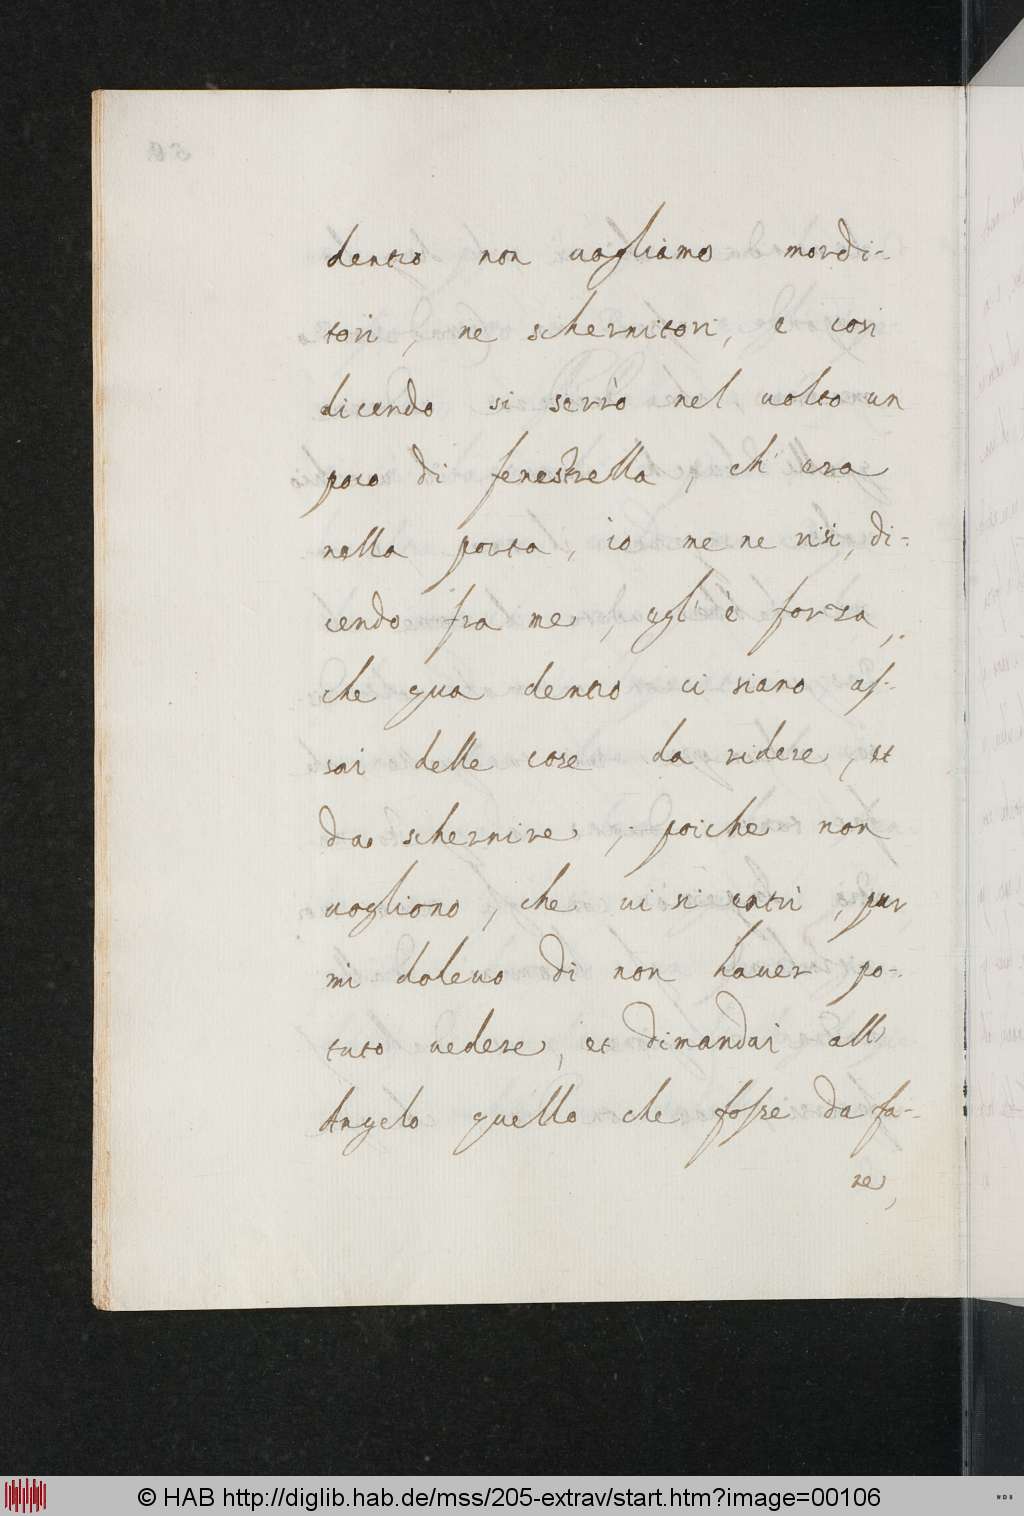 dentro non uogliamo mordi-
tori, ne schernitori, e cosi
dicendo si serrò nel uolto un
poco di fenestrella, ch'era
nella porta, io me ne risi, di-
cendo fra me, egl'è forza,
che qua dentro ci siano as-
sai delle cose da ridere, et
da schernire, poiche non
uogliono, che ui si entri, pur
mi doleuo di non hauer po-
tuto uedere, et dimandai all'
Angelo quello che fosse da fa-
re,
© HAB http://diglib.hab.de/mss/205-extrav/start.htm?image=00106